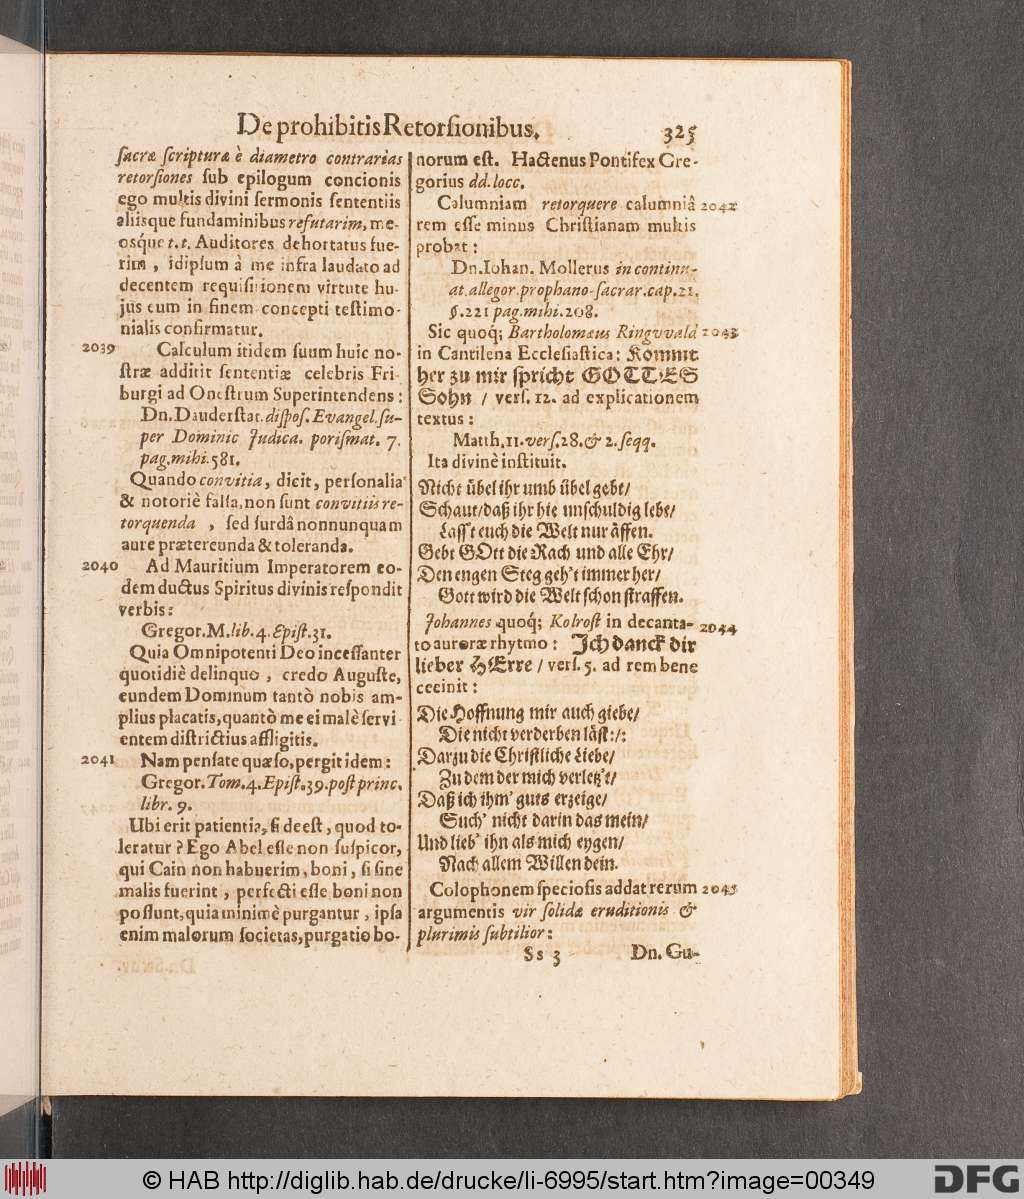 De prohibitis Retorsionibus. 325
sacræ scripturæ è diametro contrarias
retorsiones sub epilogum concionis
ego multis divini sermonis sententiis
aliisque fundaminibus refutarim, me-
osq́ue t.t. Auditores dehortatus fue-
rim, idipsum à me infra laudato ad
decentem requisitionem virtute hu-
jus cum in finem concepti testimo-
nialis confirmatur.
2039 Calculum itidem suum huic no-
stræ additit sententiæ celebris Fri-
burgi ad Onestrum Superintendens:
Dn. Dauderstat. dispos. Evangel. su-
per Dominic Judica. porismat. 7.
pag. mihi. 581.
Quando convitia, dicit, personalia
& notoriè falsa, non sunt convitiis re-
torquenda, sed surdâ nonnunquam
aure prætereunda & toleranda.
2040 Ad Mauritium Imperatorem eo-
dem ductus Spiritus divinis respondit
verbis:
Gregor. M. lib. 4. Epist. 31.
Quia Omnipotenti Deo incessanter
quotidiè delinquo, credo Auguste,
eundem Dominum tantò nobis am-
plius placatis, quantò me ei malè servi
entem districtius affligitis.
2041 Nam pensate quæso, pergit idem:
Gregor. Tom. 4. Epist. 39. post princ.
libr. 9.
Ubi erit patientia, si deest, quod to-
leratur? Ego Abel esse non suspicor,
qui Cain non habuerim, boni, si sine
malis fuerint, perfecti esse boni non
possunt, quia minimè purgantur, ipsa
enim malorum societas, purgatio bo-
norum est. Hactenus Pontifex Gre-
gorius dd. locc.
Calumniam retorquere calumniâ 2042
rem esse minus Christianam multis
probat:
Dn. Iohan. Mollerus in continu-
at. allegor. prophano-sacrar. cap. 21.
§. 221 pag. mihi. 208.
Sic quoq́; Bartholomæus Ringvvald 2043
in Cantilena Ecclesiastica: Kommt
her zu mir spricht GOTTES
Sohn / vers. 12. ad explicationem
textus:
Matth. 11. vers. 28. & 2. seqq.
Ita divinè instituit.
Nicht übel ihr umb übel gebt/
Schaut/ daß ihr hie unschuldig lebt/
Lass't euch die Welt nur äffen.
Gebt GOtt die Rach und alle Ehr/
Den engen Steg geh't immer her/
Gott wird die Welt schon straffen.
Johannes quoq́; Kolrost in decanta- 2044
to auroræ rhytmo: Ich danck dir
lieber HErre / vers. 5. ad rem bene
cecinit:
Die Hoffnung mir auch giebe/
Die nicht verderben läst:/:
Darzu die Christliche Liebe/
Zu dem der mich verletz't/
Daß ich ihm' guts erzeige/
Such' nicht darin das mein/
Und lieb' ihn als mich eygen/
Nach allem Willen dein.
Colophonem speciosis addat rerum 2045
argumentis vir solidæ eruditionis &
plurimis subtilior:
Ss 3 Dn. Gu-
© HAB http://diglib.hab.de/drucke/li-6995/start.htm?image=00349
DFG